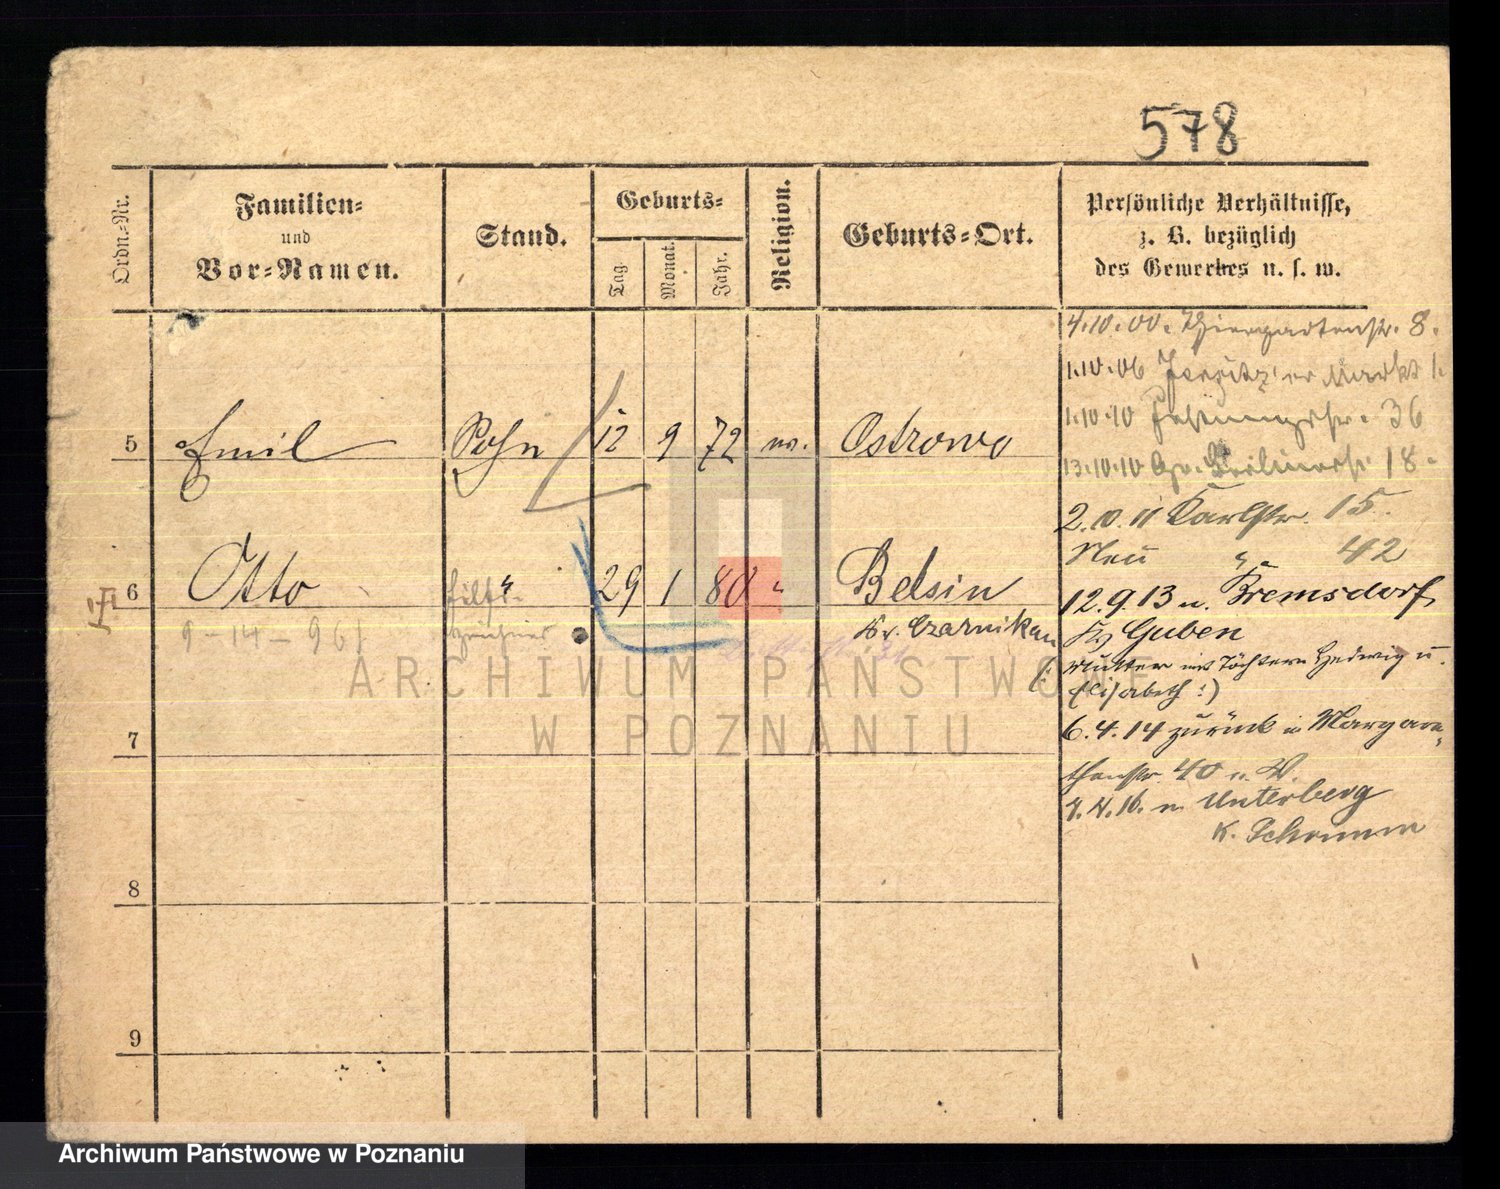 578
Ordn.-Nr.
Familien-
und
Vor-Namen.
Stand.
Geburts-
Tag.
Monat.
Jahr.
Religion.
Geburts-Ort.
Persönliche Verhältnisse,
z. B. bezüglich
des Gewerbes u. s. w.
4.10.00. Thiergartenstr. 8.
1.10.06 Jersitz'er Markt 1.
1.10.10 36
13.10.10 Gr. Berlinerstr. 18.
5 Emil Sohn 12 9 72 ev. Ostrowo
2.10.11 Karlstr. 15.
Neu " 42
6 Otto " 29 1 80 " Belsin
Kr. Czarnikau
9-14-961
12.9.13 n. Bremsdorf
Kr Guben
(: Mutter mit Töchtern Hedwig u.
Elisabeth :)
6.4.14 zurück in Margare-
thenstr. 40 n. W.
4.4.16. n. Unterberg
K. Schrimm
7
8
9
ARCHIWUM PAŃSTWOWE
W POZNANIU
Archiwum Państwowe w Poznaniu